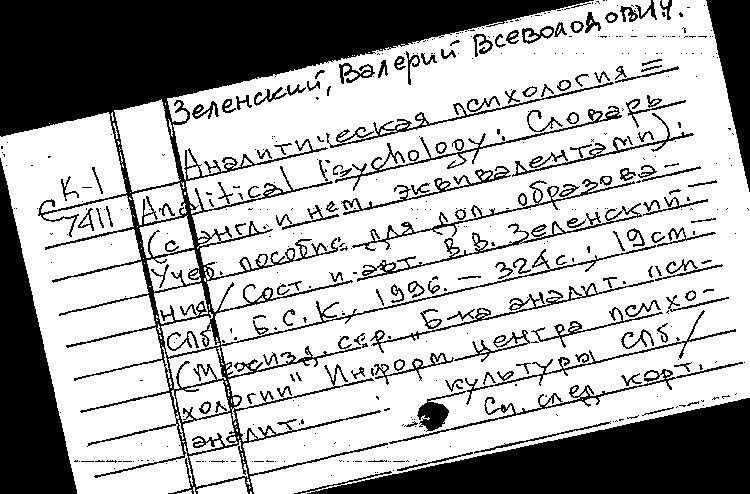 Зеленский, Валерий Всеволодович.
Аналитическая психология =
К-1
7411
Analitical Psychology: Словарь
(с англ. и нем. эквивалентами):
Учеб. пособие для доп. образова-
ния / Сост. и авт. В.В. Зеленский. -
СПб.: Б.С.К., 1996. - 324 с.; 19 см. -
(Межизд. сер. „Б-ка аналит. пси-
хологии" Информ. центра психо-
аналит. культуры СПб. /
См. след. карт.